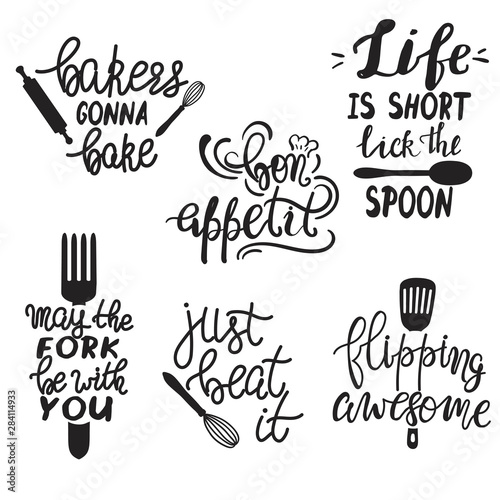 bakers
GONNA
bake
Life
IS SHORT
lick the
SPOON
bon
appetit
may the
FORK
be with
YOU
just
beat
it
flipping
awesome
Adobe Stock | #284114933